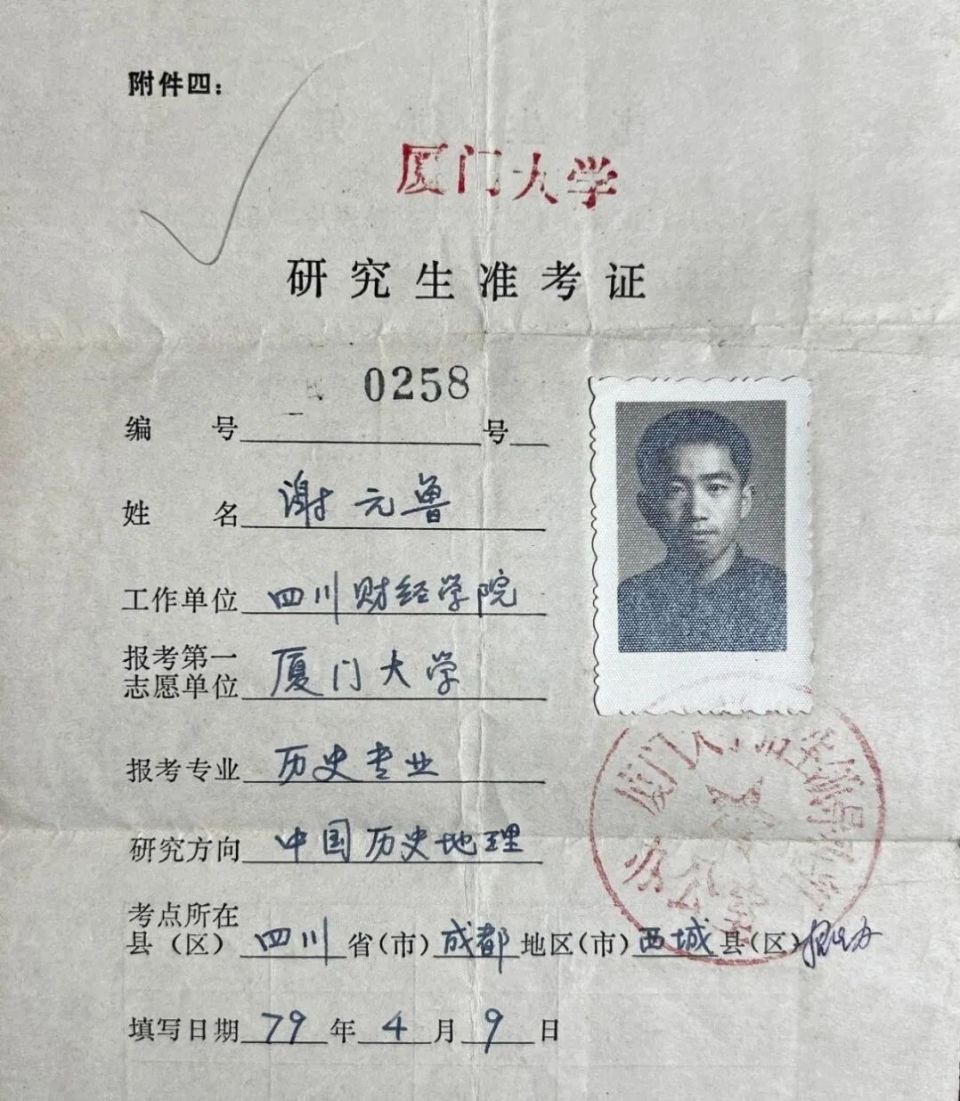 附件四：
厦门大学
研究生准考证
0258
编 号 号
姓 名 谢元鲁
工作单位 四川财经学院
报考第一
志愿单位 厦门大学
报考专业 历史专业
研究方向 中国历史地理
考点所在
县（区） 四川 省（市）成都 地区（市）西城 县（区）招生办
填写日期 79 年 4 月 9 日
厦门大
办公室